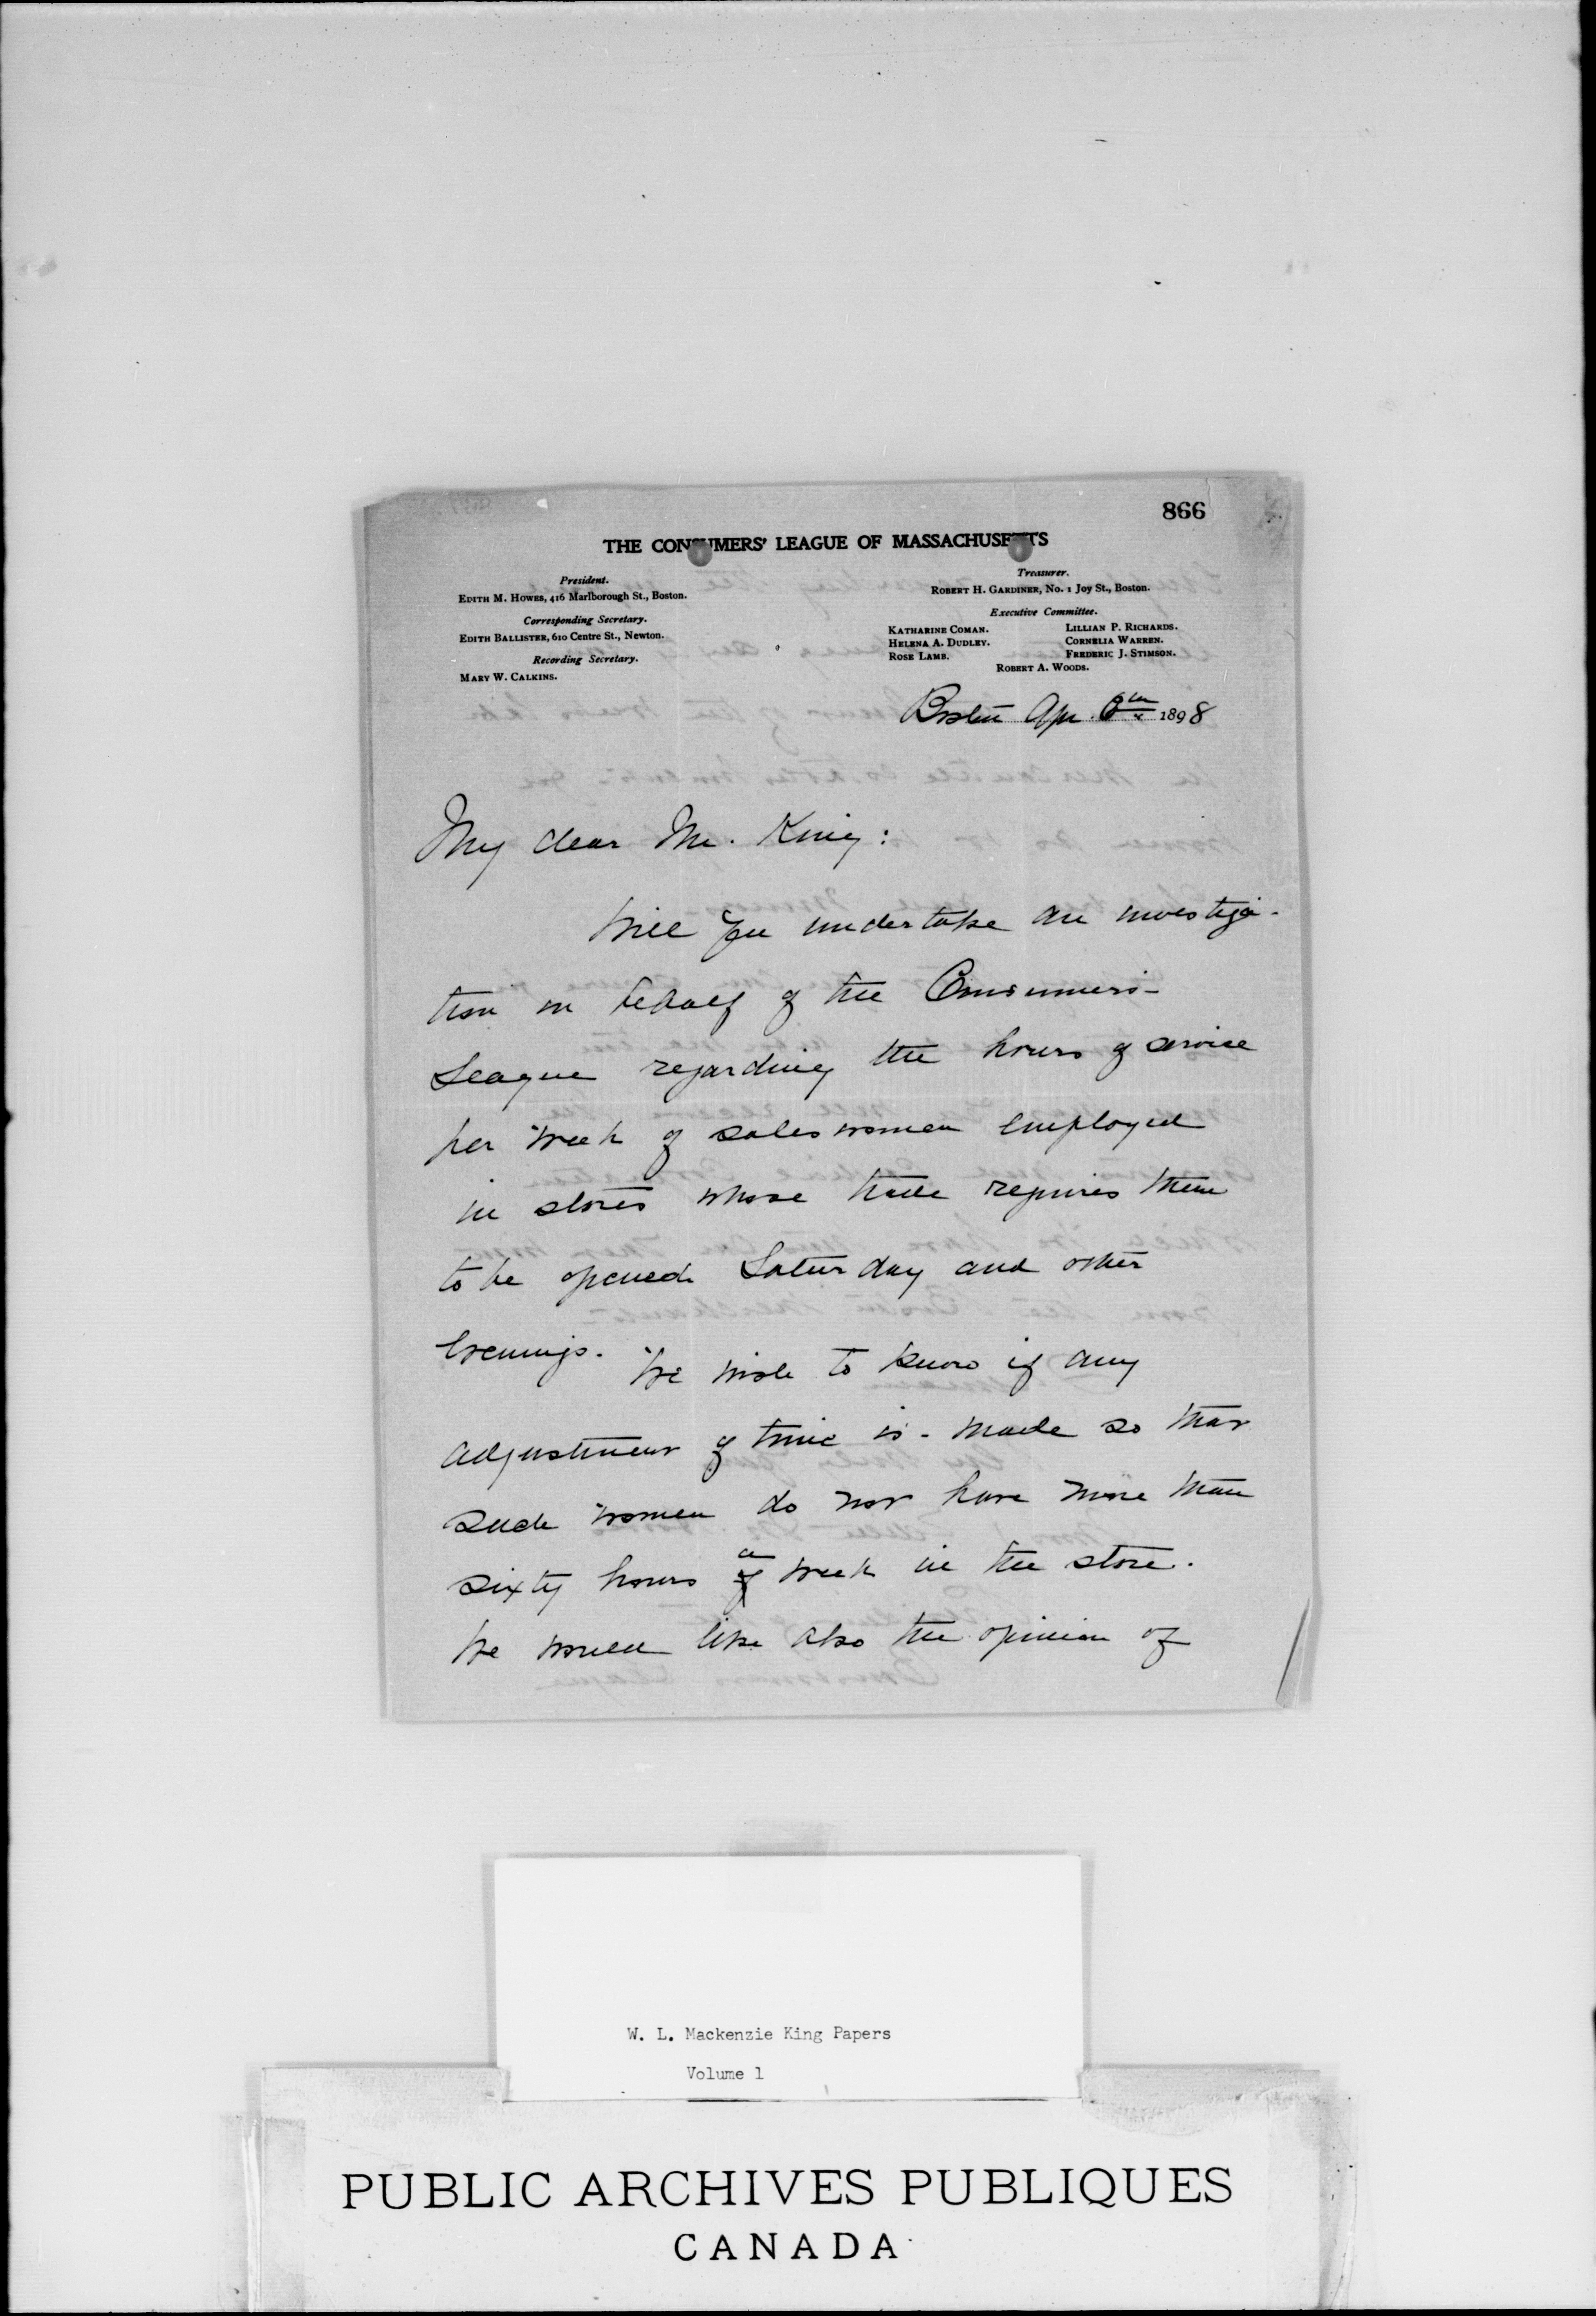 866
THE CONSUMERS' LEAGUE OF MASSACHUSETTS
President.
EDITH M. HOWES, 416 Marlborough St., Boston.
Corresponding Secretary.
EDITH BALLISTER, 610 Centre St., Newton.
Recording Secretary.
MARY W. CALKINS.
Treasurer.
ROBERT H. GARDINER, No. 1 Joy St., Boston.
Executive Committee.
KATHARINE COMAN. LILLIAN P. RICHARDS.
HELENA A. DUDLEY. CORNELIA WARREN.
ROSE LAMB. FREDERIC J. STIMSON.
ROBERT A. WOODS.
Boston Apr. 6th 1898
My dear Mr. King:
Will you undertake an investiga-
tion on behalf of the Consumers-
League regarding the hours of service
per week of saleswomen employed
in stores whose trade requires them
to be opened Saturday and other
evenings. We wish to know if any
adjustment of time is - made so that
such women do not have more than
sixty hours a week in the store.
We would like also the opinion of
W. L. Mackenzie King Papers
Volume 1
PUBLIC ARCHIVES PUBLIQUES
CANADA